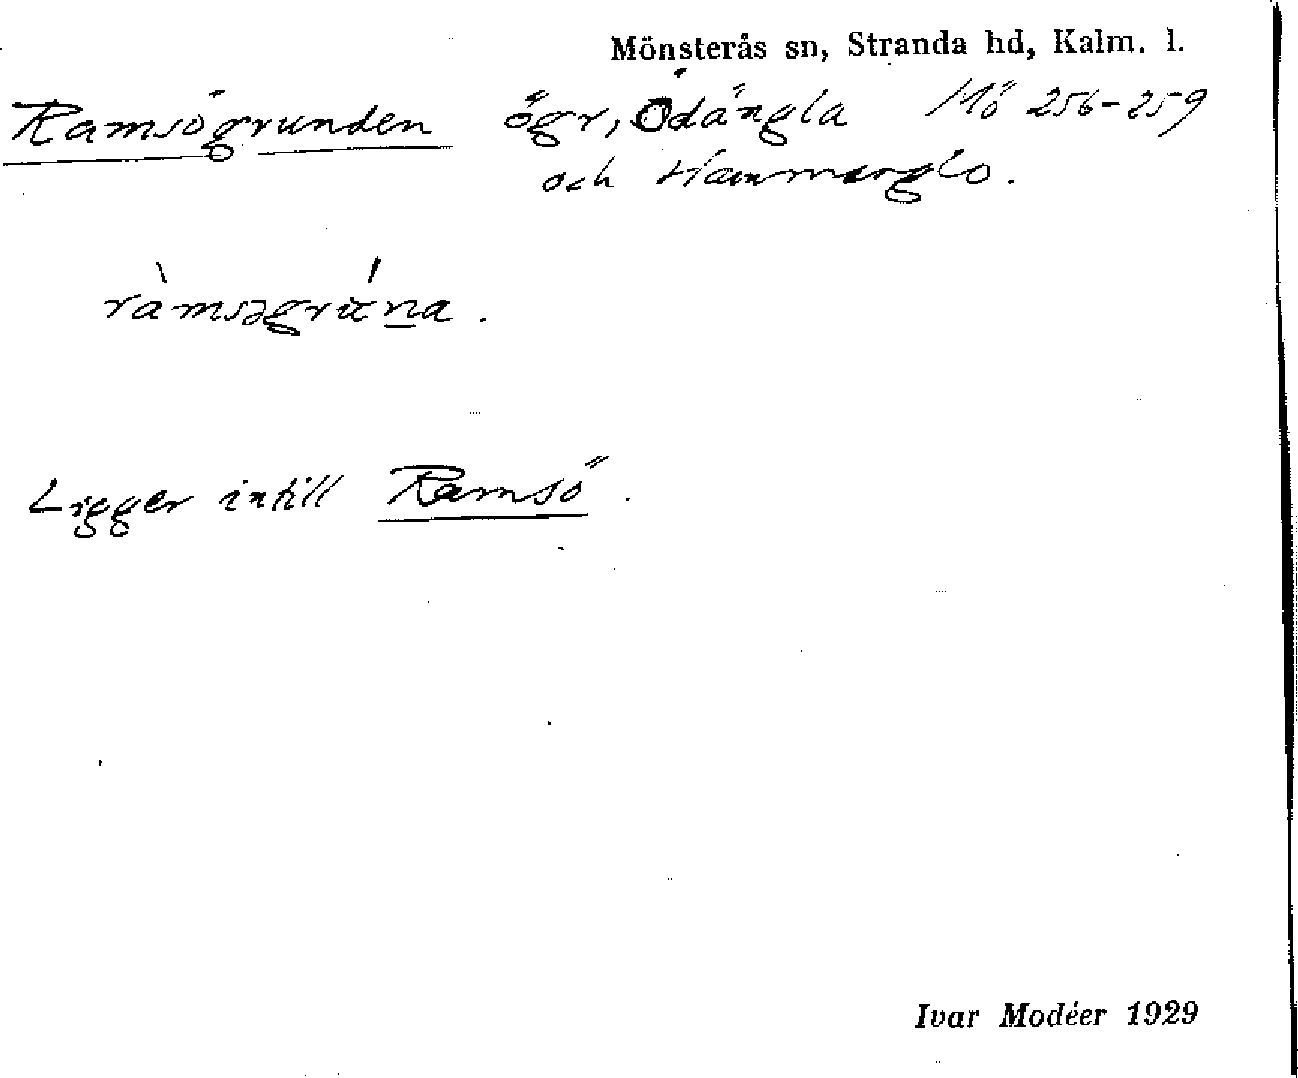 Mönsterås sn, Stranda hd, Kalm. l.
Ramsögrunden ögr, Ödängla Mö 256-259
och Hammarglo.
ràmsəgrúna.
Ligger intill Ramsö.
Ivar Modéer 1929